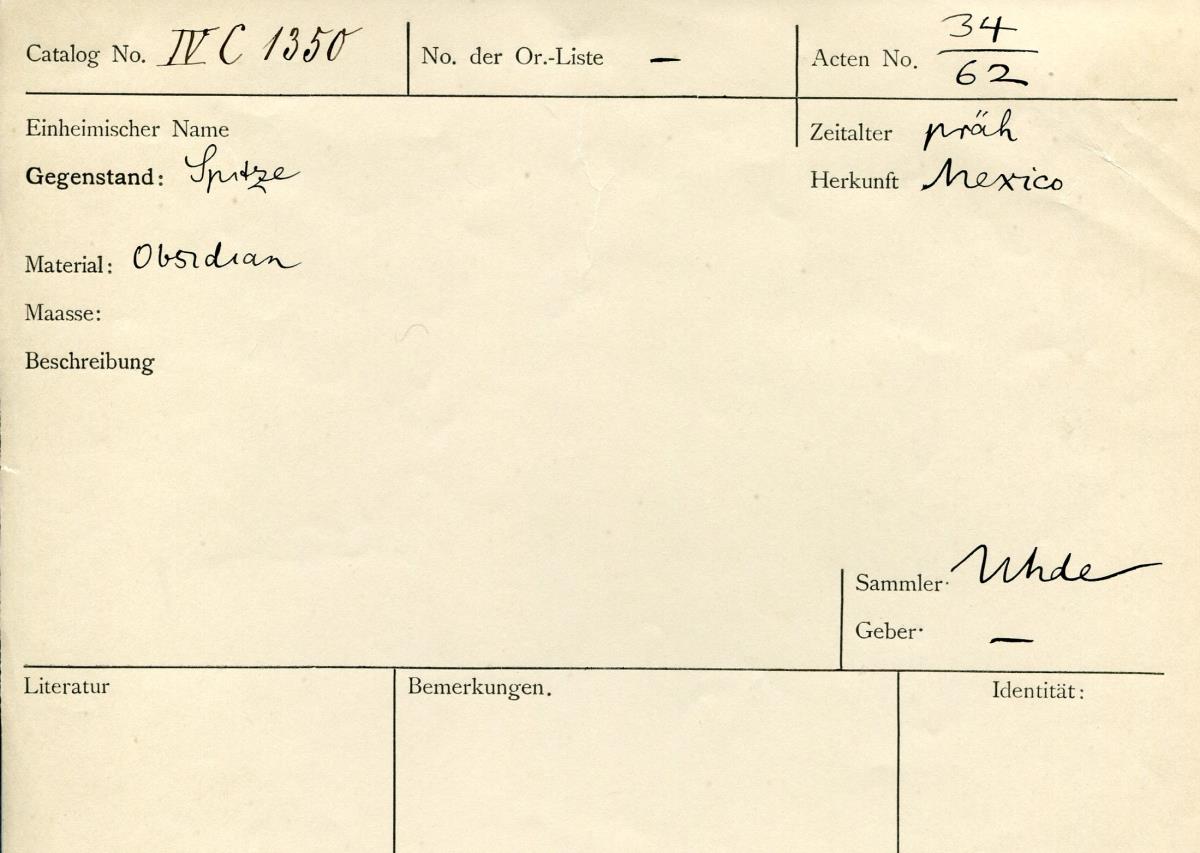 Catalog No. IV C 1350
No. der Or.-Liste —
Acten No. 34/62
Einheimischer Name
Zeitalter präh
Gegenstand: Spitze
Herkunft Mexico
Material: Obsidian
Maasse:
Beschreibung
Sammler· Uhde
Geber· —
Literatur
Bemerkungen.
Identität: